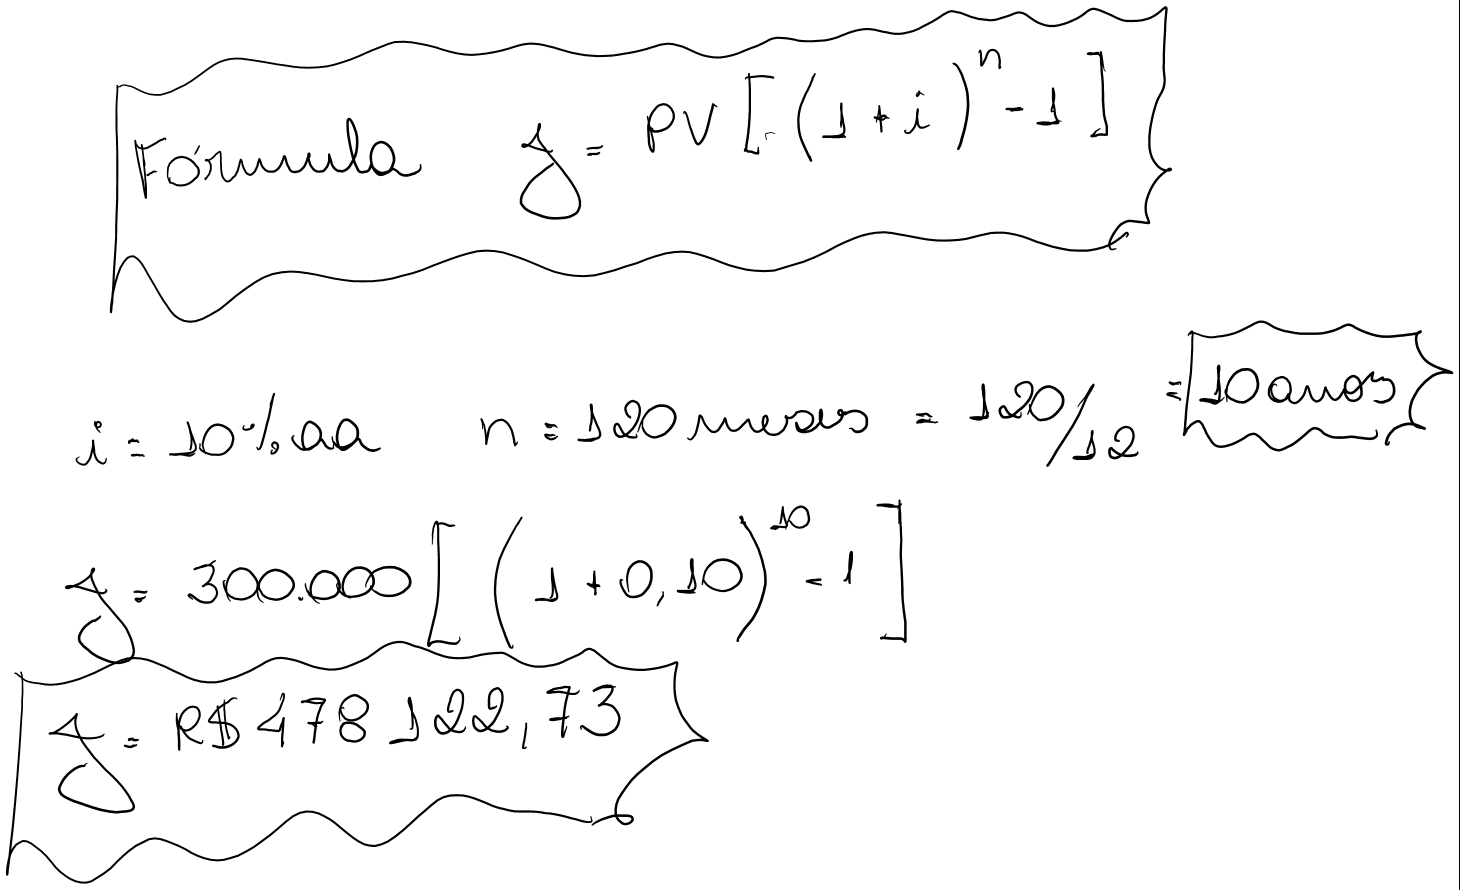 Fórmula J = PV [(1 + i)ⁿ - 1]
i = 10% aa n = 120 meses = 120/12 = 10 anos
J = 300.000 [(1 + 0,10)¹⁰ - 1]
J = R$ 478 122,73